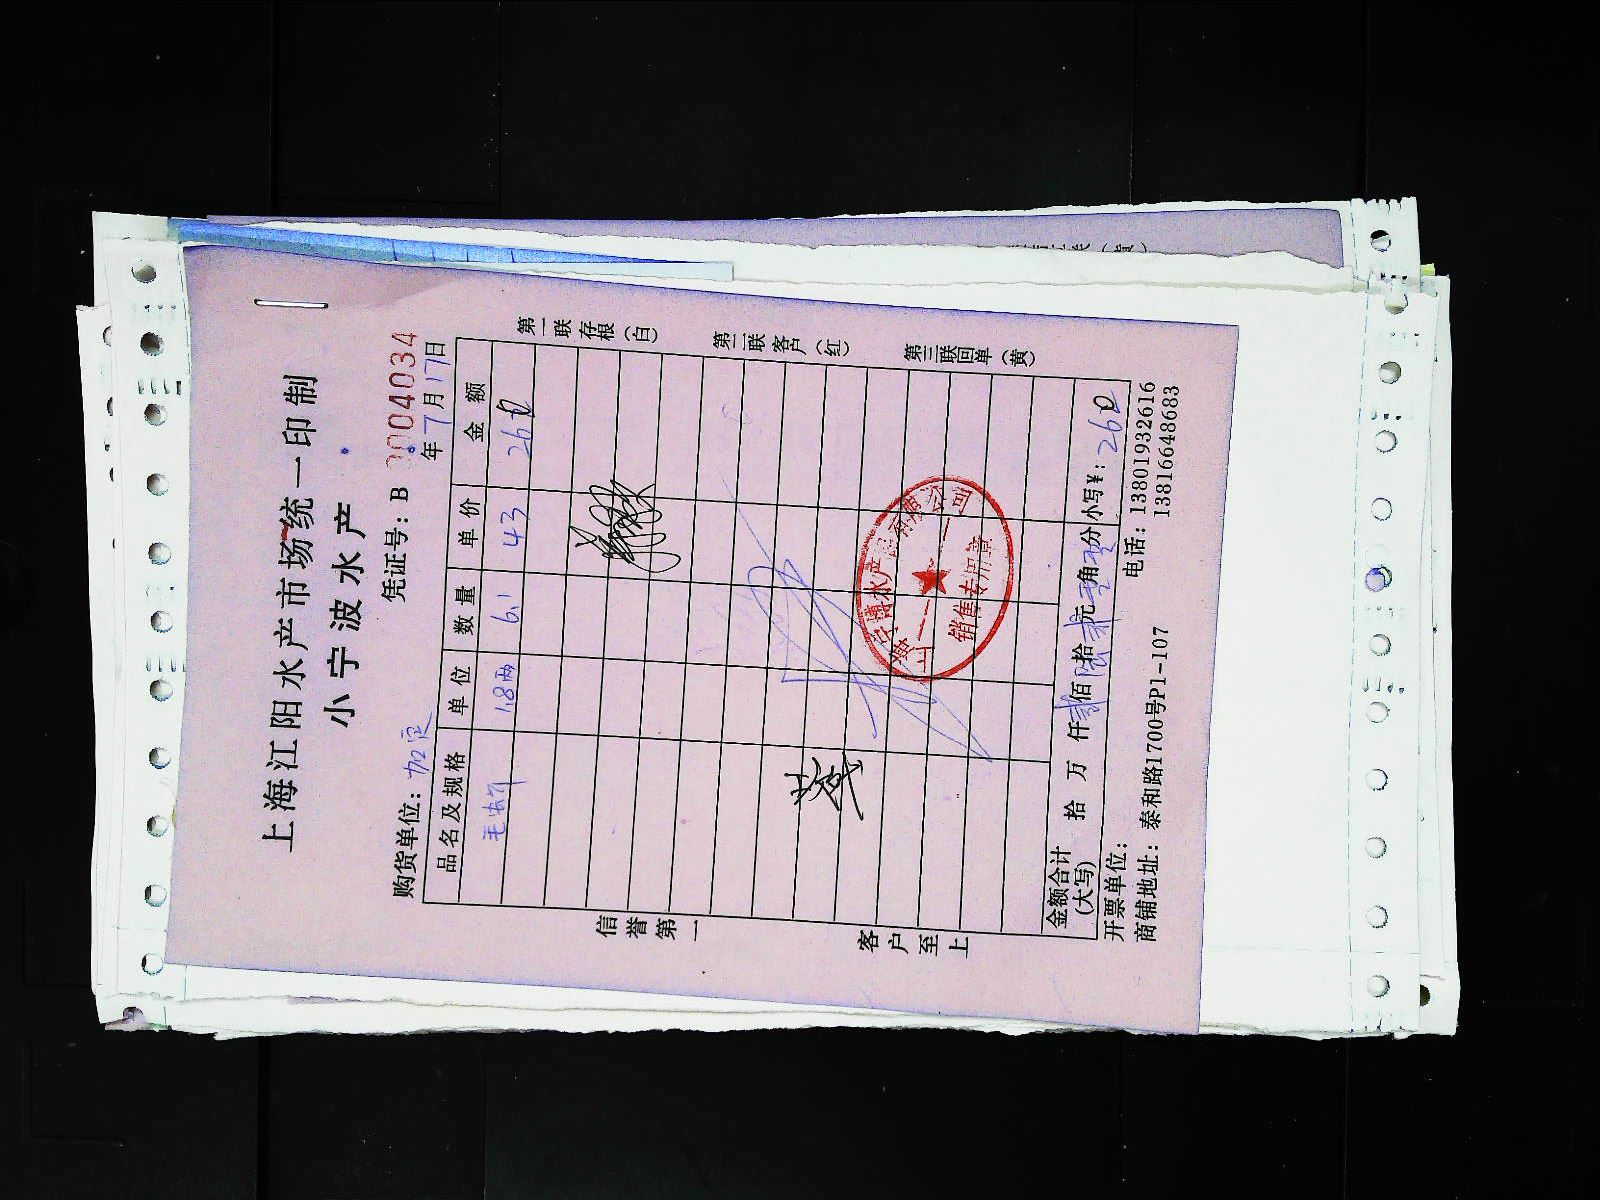 上海江阳水产市场统一印制
小宁波水产
凭证号：B 0004034
购货单位：加定 年7月17日
品名及规格 单位 数量 单价 金额
毛蚶 1.8两 6.1 43 262
第一联存根（白）
第二联客户（红）
第三联回单（黄）
信誉第一
客户至上
金额合计（大写） 拾 万 仟 贰佰陆拾贰元 角 分 小写¥：262
开票单位： 电话：13801932616
商铺地址：泰和路1700号P1-107 13816648683
销售专用章